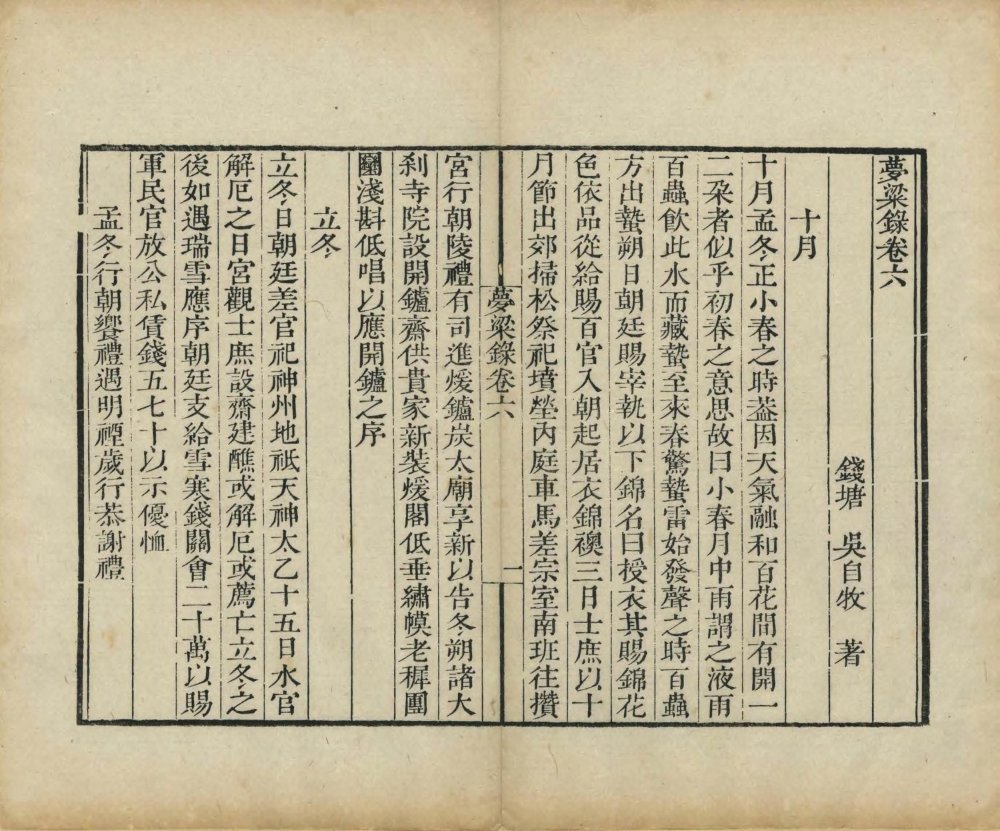 夢粱錄卷六
錢塘 吳自牧 著
十月
十月孟冬正小春之時葢因天氣融和百花間有開一
二朶者似乎初春之意思故曰小春月中雨謂之液雨
百蟲飮此水而藏蟄至來春驚蟄雷始發聲之時百蟲
方出蟄朔日朝廷賜宰執以下錦名曰授衣其賜錦花
色依品從給賜百官入朝起居衣錦襖三日士庶以十
月節出郊掃松祭祀墳塋內庭車馬差宗室南班往攢
夢粱錄卷六 一
宮行朝陵禮有司進煖鑪炭太廟享新以告冬朔諸大
刹寺院設開鑪齋供貴家新裝煖閣低垂繡幙老穉團
圞淺斟低唱以應開鑪之序
立冬
立冬日朝廷差官祀神州地祇天神太乙十五日水官
解厄之日宮觀士庶設齋建醮或解厄或薦亡立冬之
後如遇瑞雪應序朝廷支給雪寒錢關會二十萬以賜
軍民官放公私賃錢五七十以示優恤
孟冬行朝饗禮遇明禋歲行恭謝禮